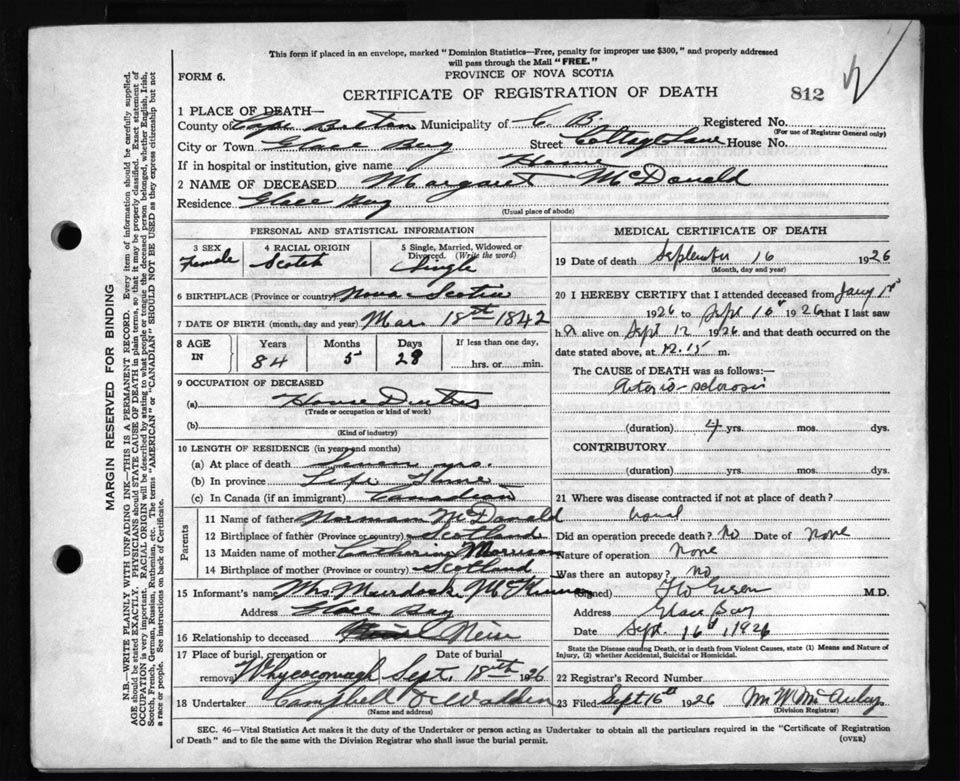 This form if placed in an envelope, marked "Dominion Statistics—Free, penalty for improper use $300," and properly addressed
will pass through the Mail "FREE."
FORM 6.
PROVINCE OF NOVA SCOTIA
CERTIFICATE OF REGISTRATION OF DEATH
812
1 PLACE OF DEATH—
County of Cape Breton Municipality of C B. Registered No.
(For use of Registrar General only)
City or Town Glace Bay Street Cottage Lane House No.
If in hospital or institution, give name Home
2 NAME OF DECEASED Margaret McDonald
Residence Glace Bay
(Usual place of abode)
PERSONAL AND STATISTICAL INFORMATION
3 SEX Female
4 RACIAL ORIGIN Scotch
5 Single, Married, Widowed or Divorced. (Write the word) Single
6 BIRTHPLACE (Province or country) Nova Scotia
7 DATE OF BIRTH (month, day and year) Mar. 18th 1842
8 AGE IN Years 84 Months 5 Days 29 If less than one day, hrs. or min.
9 OCCUPATION OF DECEASED
(a) House Duties
(Trade or occupation or kind of work)
(b)
(Kind of industry)
10 LENGTH OF RESIDENCE (in years and months)
(a) At place of death yrs.
(b) In province Life Time
(c) In Canada (if an immigrant) Canadian
Parents
11 Name of father Norman McDonald
12 Birthplace of father (Province or country) Scotland
13 Maiden name of mother Catherine Morrison
14 Birthplace of mother (Province or country) Scotland
15 Informant's name Mrs Murdock McKinnon
Address Glace Bay
16 Relationship to deceased Neice
17 Place of burial, cremation or removal Whycocomagh Date of burial Sept. 18th 1926
18 Undertaker Campbell & Wadden
(Name and address)
MEDICAL CERTIFICATE OF DEATH
19 Date of death September 16 1926
(Month, day and year)
20 I HEREBY CERTIFY that I attended deceased from Jany 1st
1926 to Sept 16th 1926 that I last saw
her alive on Sept 12 1926 and that death occurred on
date stated above, at 12.15 m.
The CAUSE of DEATH was as follows:—
Arterio-sclerosis
(duration) 4 yrs. mos. dys.
CONTRIBUTORY
(duration) yrs. mos. dys.
21 Where was disease contracted if not at place of death?
Did an operation precede death? No Date of None
Nature of operation None
Was there an autopsy? No
Signed M.D.
Address Glace Bay
Date Sept. 16th, 1926
State the Disease causing Death, or in death from Violent Causes, state (1) Means and Nature of
Injury, (2) whether Accidental, Suicidal or Homicidal.
22 Registrar's Record Number
23 Filed Sept 16th 1926
(Division Registrar)
SEC. 46—Vital Statistics Act makes it the duty of the Undertaker or person acting as Undertaker to obtain all the particulars required in the "Certificate of Registration
of Death" and to file the same with the Division Registrar who shall issue the burial permit.
(OVER)
MARGIN RESERVED FOR BINDING
N.B.—WRITE PLAINLY WITH UNFADING INK—THIS IS A PERMANENT RECORD. Every item of information should be carefully supplied.
AGE should be stated EXACTLY. PHYSICIANS should STATE CAUSE OF DEATH in plain terms, so that it may be properly classified. Exact statement of
OCCUPATION is very important. RACIAL ORIGIN will be described by stating to what people or tongue the deceased person belonged, whether English, Irish,
Scotch, French, German, Russian, Ruthenian, etc. The terms "AMERICAN" or "CANADIAN" SHOULD NOT BE USED as they express citizenship but not
a race or people. See instructions on back of Certificate.